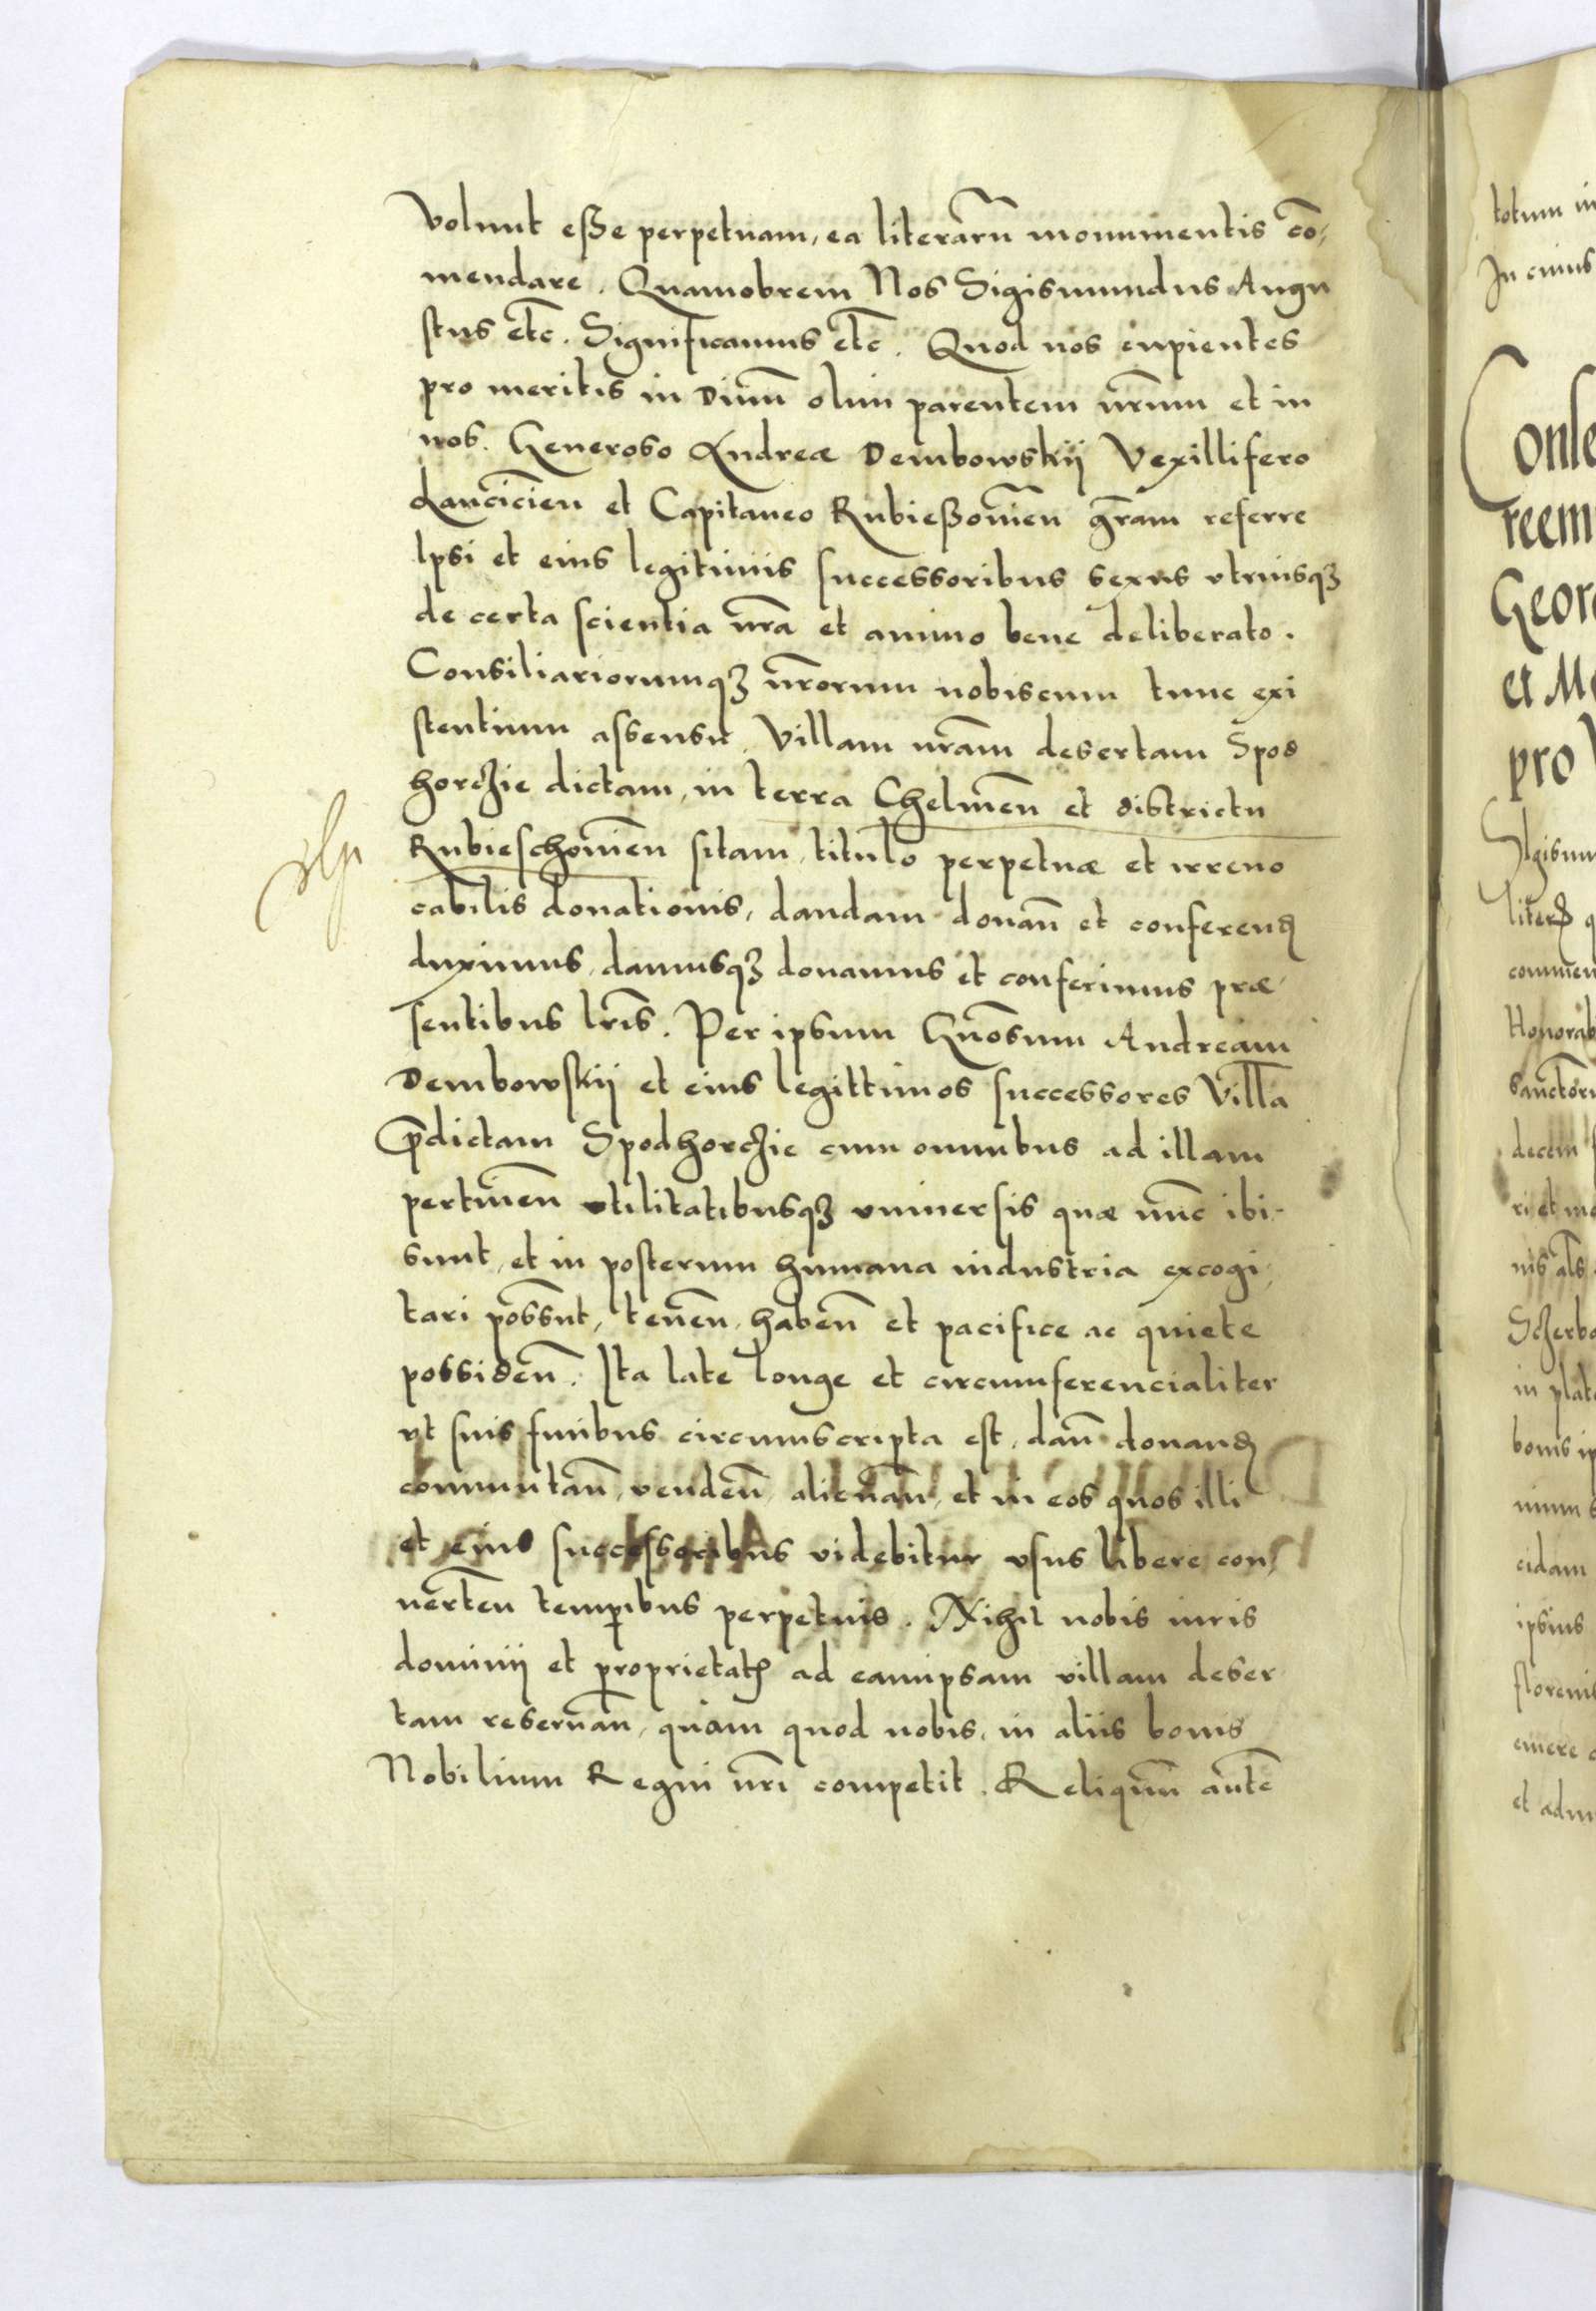 Volunt eße perpetuam, ea literarũ monumentis cõ,
mendare. Quamobrem Nos Sigismundus Augu
stus etc̃. Significamus etc̃. Quod nos cupientes
pro meritis in Divũ olim parentem nr̃um et in
nos. Generoso Andreæ Dembowskij Vexillifero
Lancicieñ et Capitaneo Rubießovieñ gr̃am referre
Ipsi et eius legitimis successoribus sexus utriusqꝫ
de certa scientia nr̃a et animo bene deliberato.
Consiliariorumqꝫ nr̃orum nobiscum tunc exi
stentium assensu. Villam nr̃am desertam Spod
horcźie dictam, in terra Chelmeñ et districtu
Rubieschovieñ sitam, titulo perpetuæ et irrevo
cabilis donationis, dandam donañ et conferend
duximus, damusqꝫ donamus et conferimus præ
sentibus lr̃is. Per ipsum Gñosum Andream
Dembowskij et eius legittimos successores Villã
p̃dictam Spodhorcźie cum omnibus ad illam
pertineñ utilitatibusqꝫ universis quæ nũc ibi
sunt, et in posterum humana industria excogi,
tari possũt, teneñ, habeñ et pacifice ac quiete
possideñ. Ita late longe et circumferencialiter
ut suis finibus circumscripta est, dañ donand
commutañ, vendeñ, alienañ, et in eos quos illi
et eius successoribus videbitur usus libere con,
verteñ temp̃ibus perpetuis. Nihil nobis iuris
dominij et proprietatꝭ ad eamipsam villam deser
tam reservañ, quam quod nobis in aliis bonis
Nobilium Regni nr̃i competit. Reliquũ autẽ
totum in
In cuius
Conse
reem
Geor
et M
pro
Sigismu
literꝭ q
commen
Honorab
sanctoru
decem
ri et
nis als
Sczerba
in plat
bonis ip
cidam
ipsius
florenis
emere
et adm